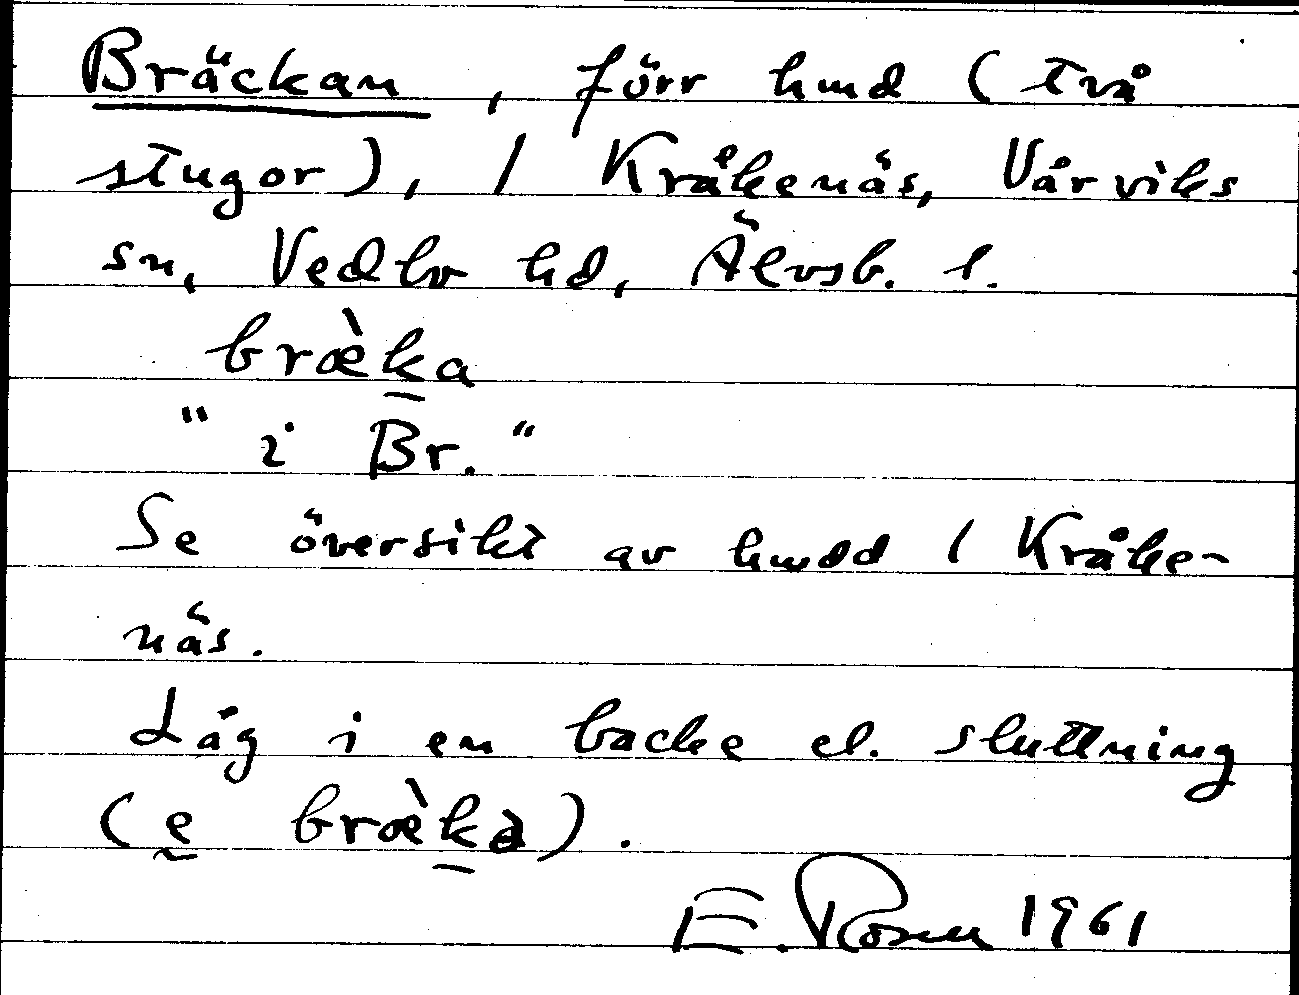 Bräckan, förr hmd (två
stugor), / Kråkenäs, Vårviks
sn, Vedbo hd, Älvsb. l.
bræ̀k̠a
"i Br."
Se översikt av hmdd / Kråke-
näs.
Låg i en backe el. sluttning
(ḛ bræ̀k̠ə).
E. Rosén 1961